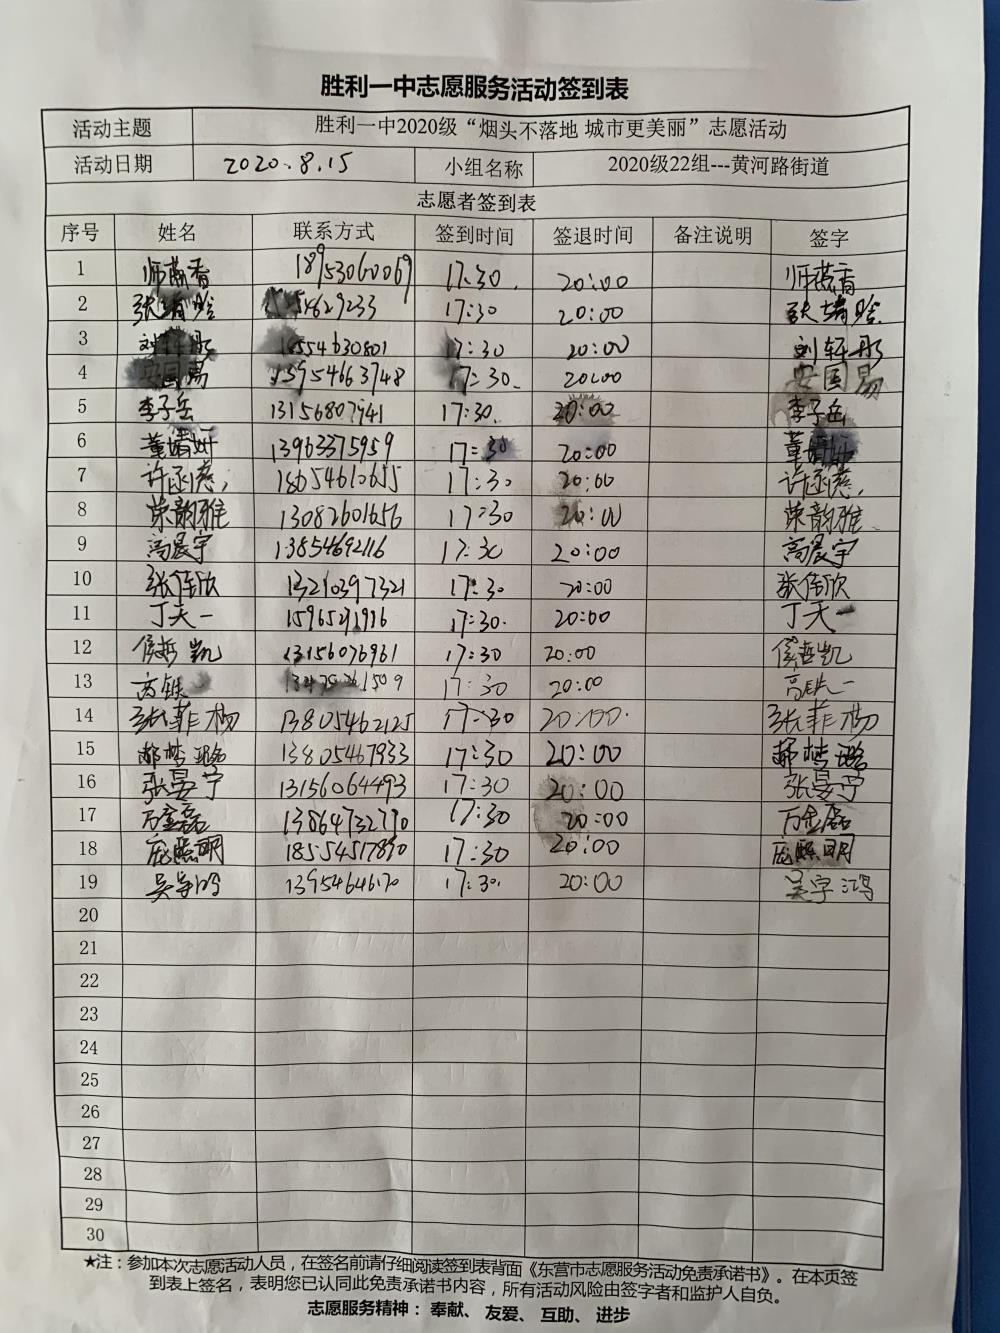 胜利一中志愿服务活动签到表
活动主题 胜利一中2020级“烟头不落地 城市更美丽”志愿活动
活动日期 2020.8.15 小组名称 2020级22组---黄河路街道
志愿者签到表
序号 姓名 联系方式 签到时间 签退时间 备注说明 签字
1 师燕香 18953060069 17:30 20:00 师燕香
2 张靖晗 4629233 17:30 20:00 张靖晗
3 刘轩彤 18554630801 17:30 20:00 刘轩彤
4 安国易 13954663748 17:30 20:00 安国易
5 李子岳 13156807941 17:30 20:00 李子岳
6 董婧妍 13963375959 17:30 20:00 董婧妍
7 许函慈 18654610655 17:30 20:00 许函慈
8 荣韵雅 13082601656 17:30 20:00 荣韵雅
9 高晨宇 13854692116 17:30 20:00 高晨宇
10 张倖欣 13210397321 17:30 20:00 张倖欣
11 丁天一 17:30 20:00 丁天一
12 侯哲凯 13156076961 17:30 20:00 侯哲凯
13 17:30 20:00
14 张菲杨 13805462125 17:30 20:00 张菲杨
15 郝梦璐 13805467933 17:30 20:00 郝梦璐
16 张晏宁 13156064493 17:30 20:00 张晏宁
17 万金磊 13864732790 17:30 20:00 万金磊
18 庞熙明 18554517890 17:30 20:00 庞熙明
19 吴宇鸿 17:30 20:00 吴宇鸿
20
21
22
23
24
25
26
27
28
29
30
★注：参加本次志愿活动人员，在签名前请仔细阅读签到表背面《东营市志愿服务活动免责承诺书》。在本页签
到表上签名，表明您已认同此免责承诺书内容，所有活动风险由签字者和监护人自负。
志愿服务精神：奉献、友爱、互助、进步